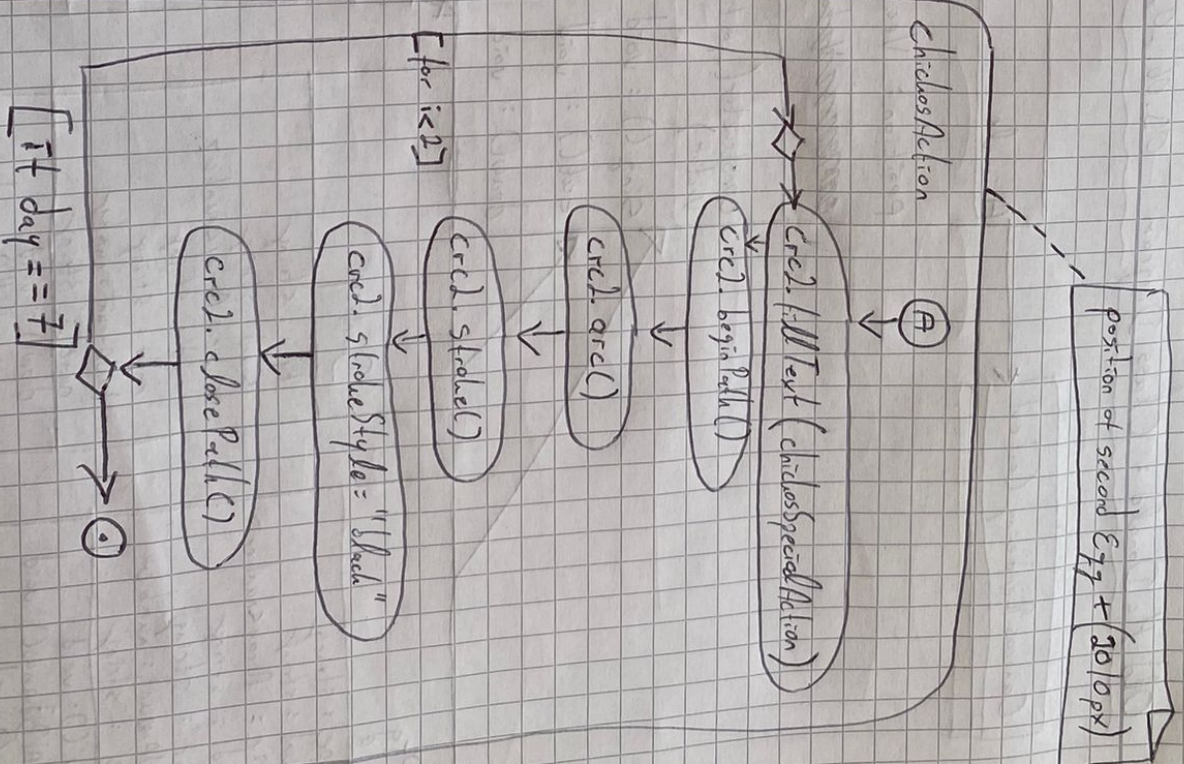 position of second Egg + (20|0px)
ChichosAction
A
crc2.fillText(chichosSpecialAction)
crc2.beginPath()
crc2.arc()
crc2.stroke()
crc2.strokeStyle="black"
crc2.closePath()
[for i<2]
[if day == 7]